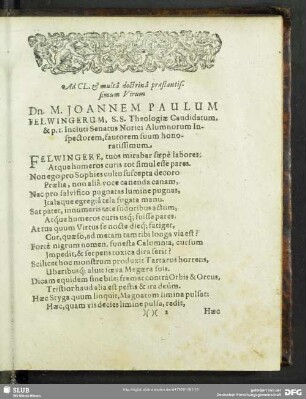 Ad CL. & multâ doctrinâ præstantis-
simum Virum
Dn. M. JOANNEM PAULUM
FELWINGERUM, S.S. Theologiæ Candidatum,
& p. t. Incluti Senatus Norici Alumnorum In-
spectorem, fautorem suum hono-
ratissimum.
FELWINGERE, tuos mirabar sæpè labores;
Atque humeris curis tot simul esse pares.
Non ego pro Sophies cultu suscepta decoro
Prælia, non aliâ voce canenda canam,
Nec pro salvifico pugnatas lumine pugnas,
egregiâ fugata manu.
Sat pater, innumeris sese sudoribus actum,
Atque humeros curis usq; fuisse pares.
At tua quum Virtus se nocte dieq; fatiget,
Cur, quæso, ad metam tam tibi longa via est?
Fortè nigrum nomen, funesta Calumnia, cursum
Impedit, & serpens toxica dira serit?
Scilicet hoc monstrum produxit Tartarus horrens,
Uberibusq; aluit sæva Megæra suis.
Dicam equidem sine bile: fremat contrà Orbis & Orcus,
Tristior haud alia est pestis & ira deûm.
Hæc Styga quum linquit, Magnatum limina pulsat:
Hæc, quam vis decies limine pulsa, redit,
)( )( 2
Hæc
SLUB
DFG